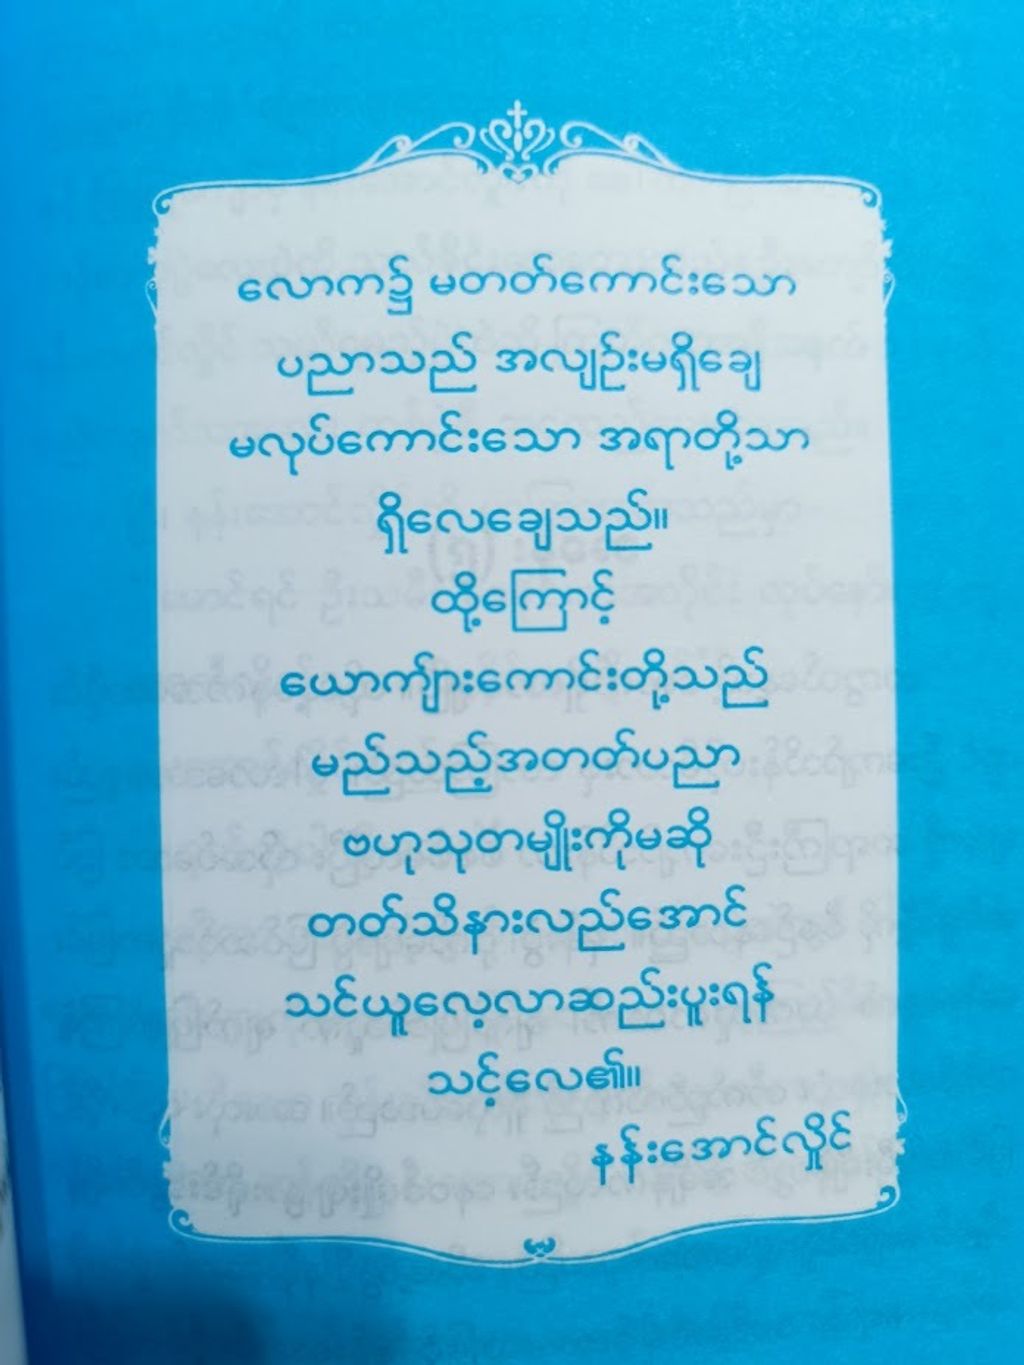 လောက၌ မတတ်ကောင်းသော
ပညာသည် အလျဉ်းမရှိချေ
မလုပ်ကောင်းသော အရာတို့သာ
ရှိလေချေသည်။
ထို့ကြောင့်
ယောက်ျားကောင်းတို့သည်
မည်သည့်အတတ်ပညာ
ဗဟုသုတမျိုးကိုမဆို
တတ်သိနားလည်အောင်
သင်ယူလေ့လာဆည်းပူးရန်
သင့်လေ၏။
နန်းအောင်လှိုင်